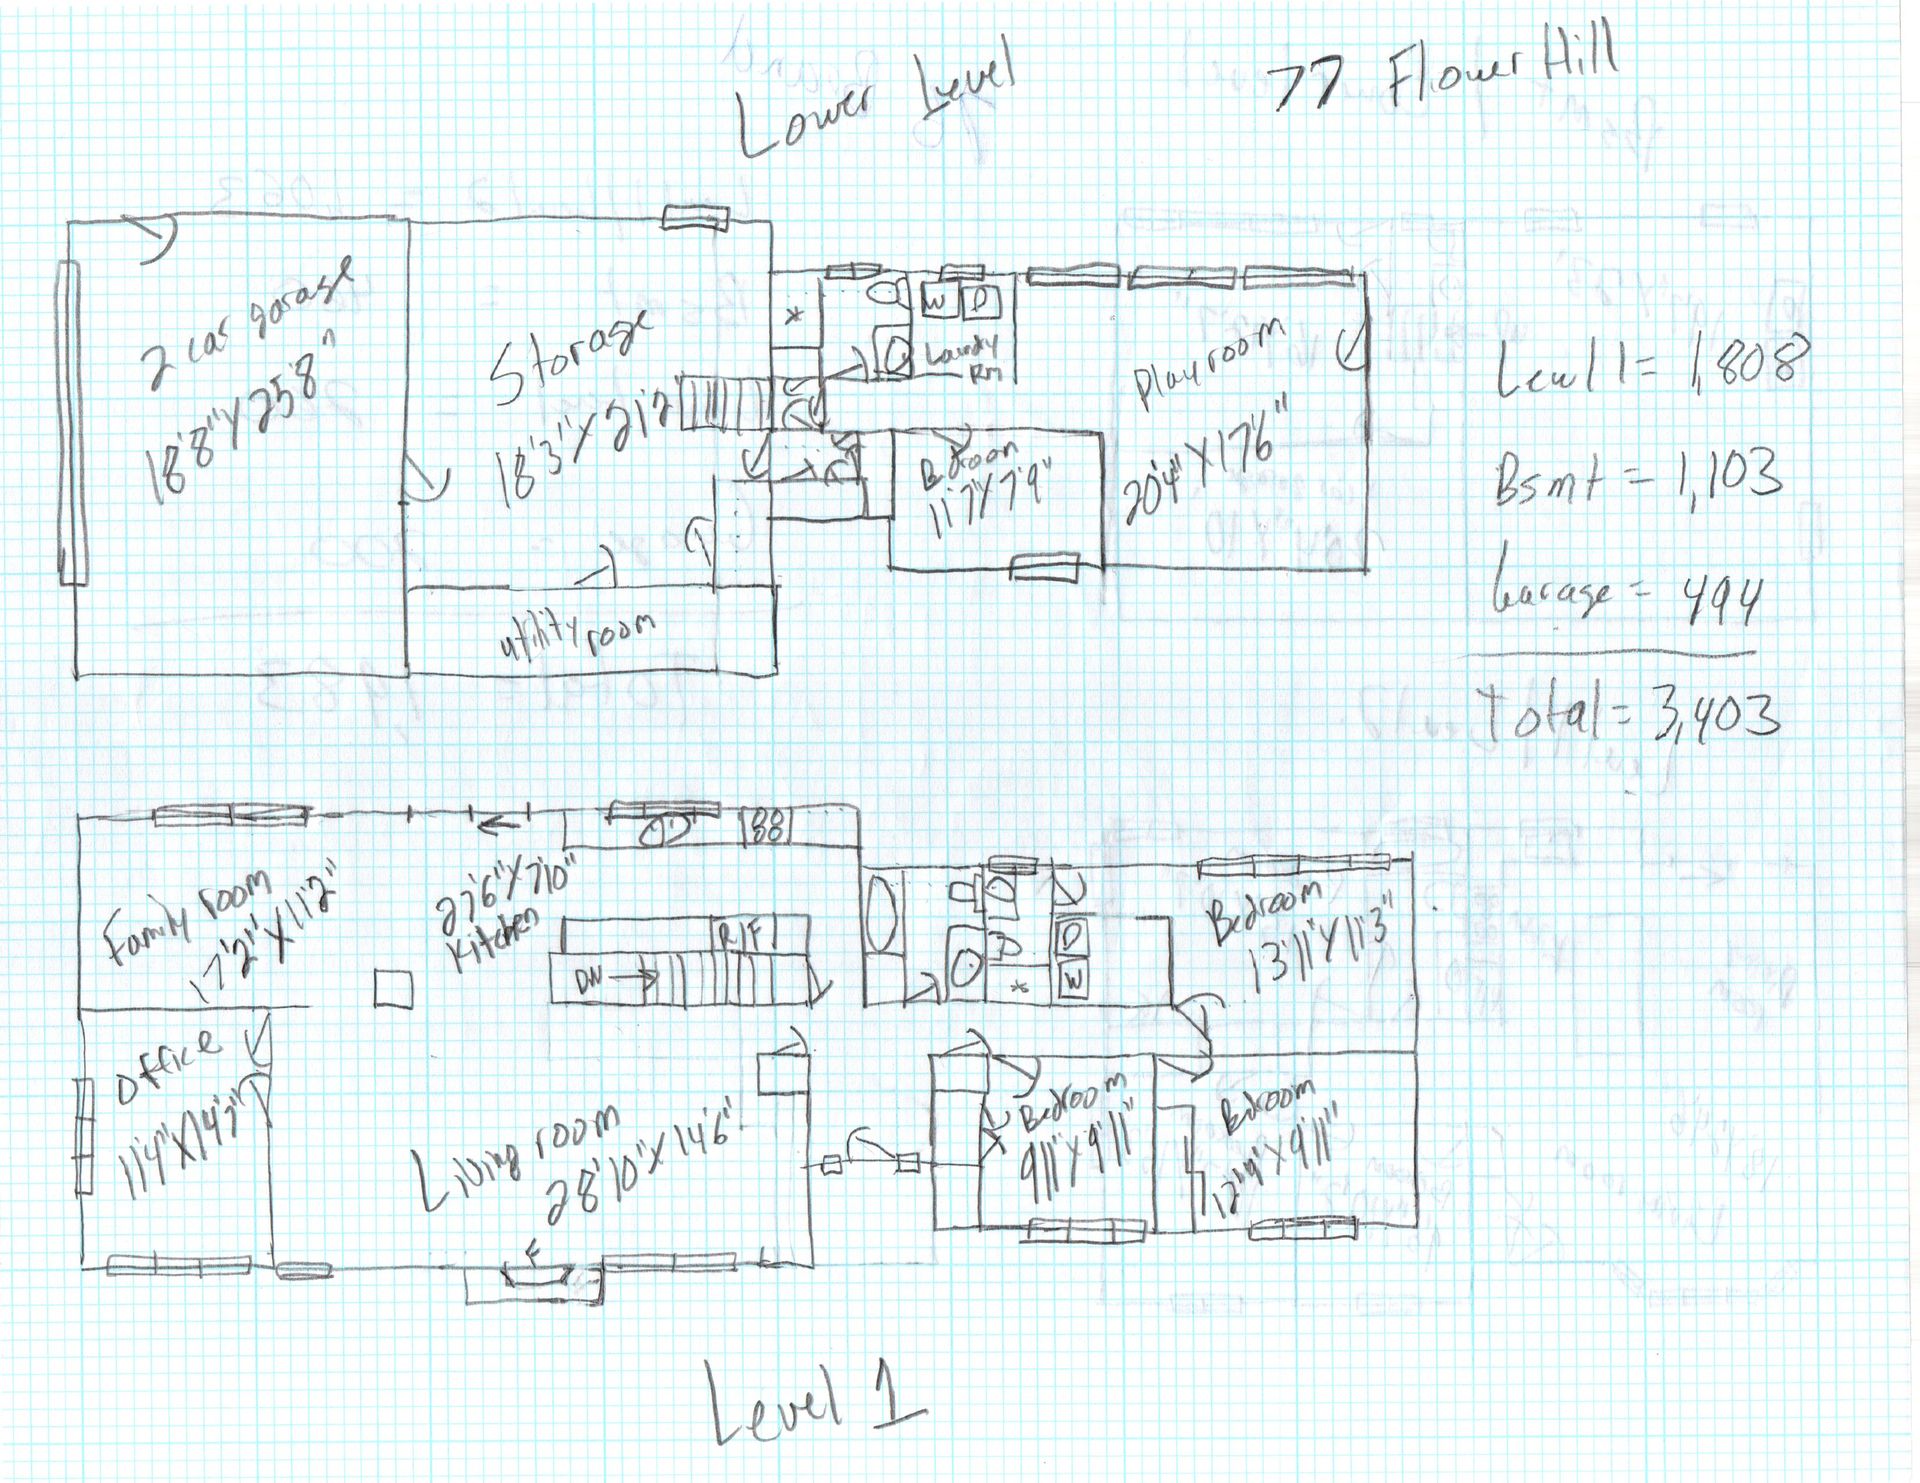 Lower Level
77 Flower Hill
2 car garage
18'8" X 25'8"
Storage
18'3" X 21'2"
*
W D
Laundry
RM
Playroom
20'4" X 17'6"
Bedroom
11'7" X 7'9"
utility room
Level 1 = 1,808
Bsmt = 1,103
Garage = 494
Total = 3,403
Family room
17'2" X 11'2"
27'6" X 7'10"
Kitchen
R/F
DN
D
W
*
Bedroom
13'11" X 11'3"
Office
11'4" X 14'7"
Living room
28'10" X 14'6"
F
Bedroom
9'11" X 9'11"
Bedroom
12'9" X 9'11"
Level 1